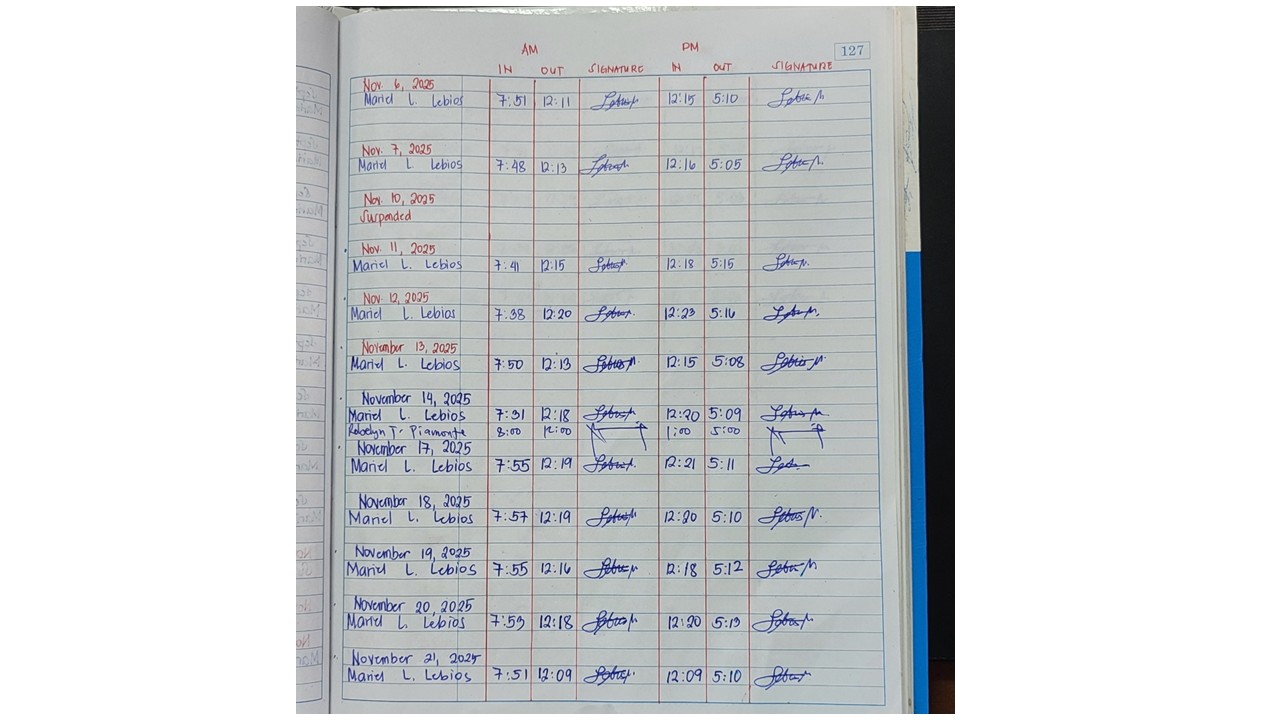 127
AM PM
IN OUT SIGNATURE IN OUT SIGNATURE
Nov. 6, 2025
Mariel L. Lebios 7:51 12:11 12:15 5:10
Nov. 7, 2025
Mariel L. Lebios 7:48 12:13 12:16 5:05
Nov. 10, 2025
Suspended
Nov. 11, 2025
Mariel L. Lebios 7:41 12:15 12:18 5:15
Nov. 12, 2025
Mariel L. Lebios 7:38 12:20 12:23 5:16
November 13, 2025
Mariel L. Lebios 7:50 12:13 12:15 5:08
November 14, 2025
Mariel L. Lebios 7:31 12:18 12:20 5:09
T. Piamonte 8:00 12:00 1:00 5:00
November 17, 2025
Mariel L. Lebios 7:55 12:19 12:21 5:11
November 18, 2025
Mariel L. Lebios 7:57 12:19 12:20 5:10
November 19, 2025
Mariel L. Lebios 7:55 12:16 12:18 5:12
November 20, 2025
Mariel L. Lebios 7:53 12:18 12:20 5:13
November 21, 2025
Mariel L. Lebios 7:51 12:09 12:09 5:10